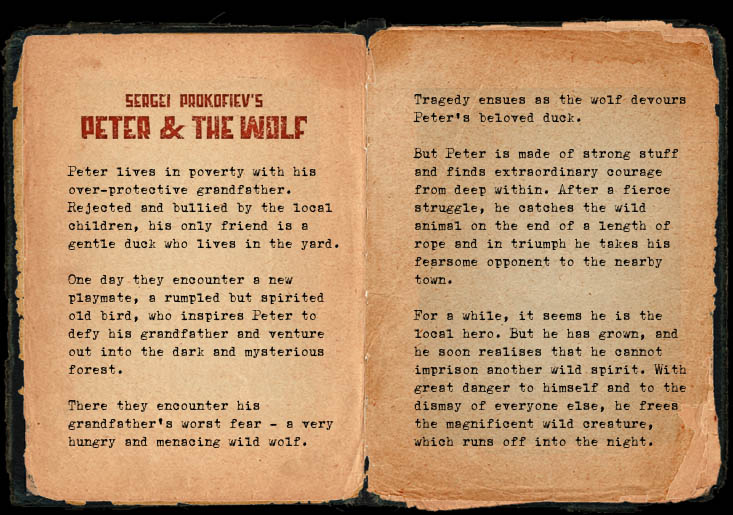 SERGEI PROKOFIEV'S
PETER & THE WOLF
Peter lives in poverty with his
over-protective grandfather.
Rejected and bullied by the local
children, his only friend is a
gentle duck who lives in the yard.
One day they encounter a new
playmate, a rumpled but spirited
old bird, who inspires Peter to
defy his grandfather and venture
out into the dark and mysterious
forest.
There they encounter his
grandfather's worst fear - a very
hungry and menacing wild wolf.
Tragedy ensues as the wolf devours
Peter's beloved duck.
But Peter is made of strong stuff
and finds extraordinary courage
from deep within. After a fierce
struggle, he catches the wild
animal on the end of a length of
rope and in triumph he takes his
fearsome opponent to the nearby
town.
For a while, it seems he is the
local hero. But he has grown, and
he soon realises that he cannot
imprison another wild spirit. With
great danger to himself and to the
dismay of everyone else, he frees
the magnificent wild creature,
which runs off into the night.